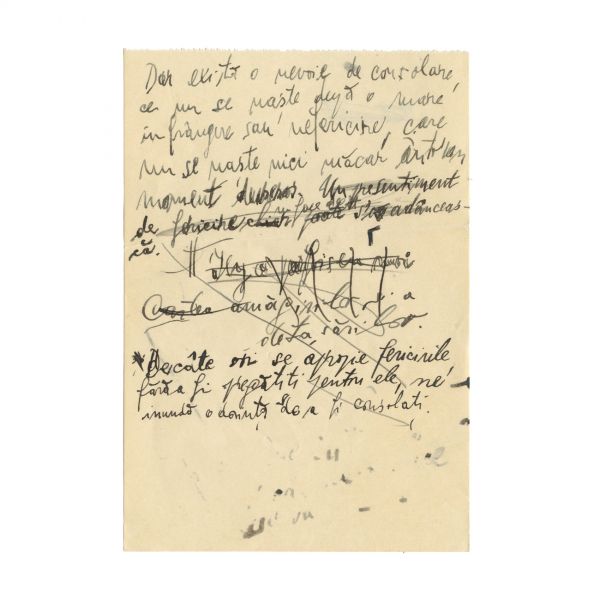 Dar există o nevoie de consolare,
ce nu se naște după o mare
înfrângere sau nefericire, care
nu se naște nici măcar într'un
moment Un presentiment
de fericire poate s'o adânceas-
că.
Il y a
Cartea amăgirilor și a
lor.
Decâte ori se apropie fericirile
fără a fi pregătiți pentru ele, ne
inundă o dorință de a fi consolați.